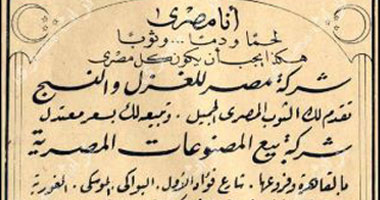 أنا مصرى
لحمًا و دمًا ... وثوبًا
هكذا يجب أن يكون كل مصرى
شركة مصر للغزل والنسج
تقدم لك الثوب المصرى الجميل . وتبيعه لك بسعر معتدل
شركة بيع المصنوعات المصرية
بالقاهرة وفروعها . شارع فؤاد الأول . البواكى . الموسكى . الغورية